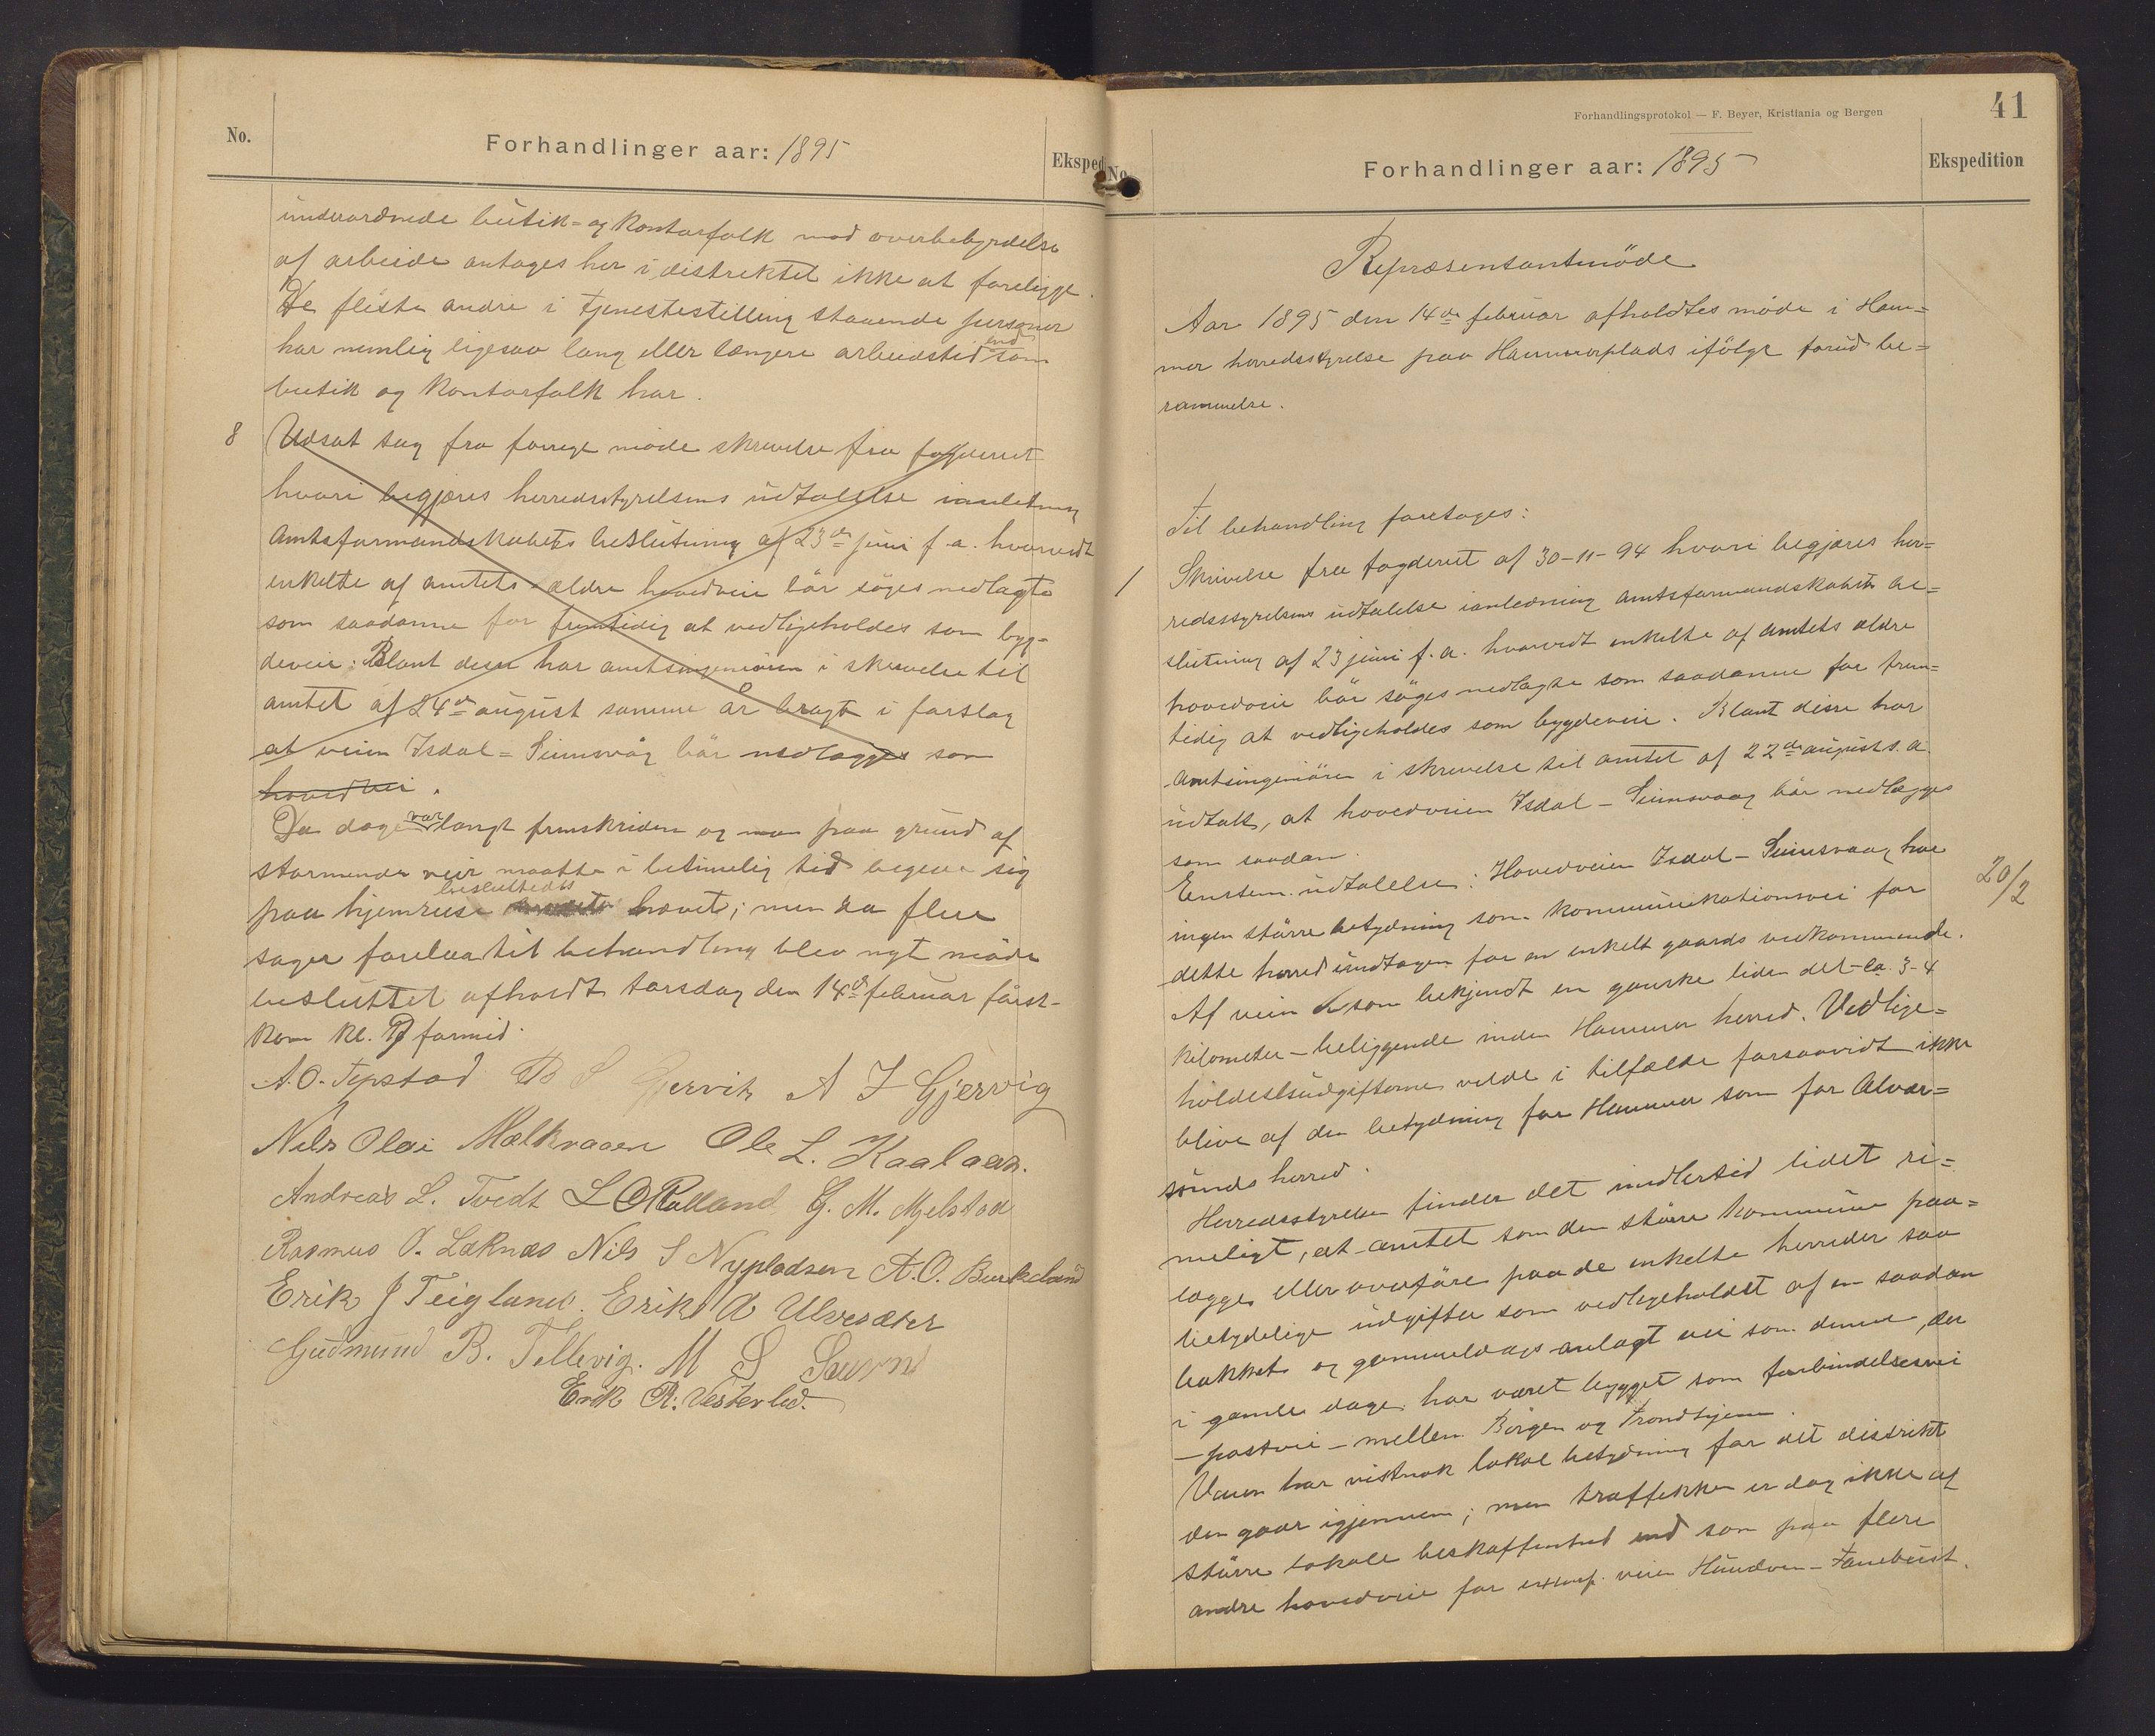 No.
Forhandlinger aar: 1895
Eksped
underordnede butik- og kontorfolk mod overbebyrdelse
af arbeide antages her i distriktet ikke at foreligge.
De fleste andre i tjenestestilling staaende personer
har nemlig ligesaa lang eller længere arbeidstid end som
butik og kontorfolk har.
8 Udsat sag fra forrige møde skrivelse fra fogderiet
hvori begjæres herredsstyrelsens udtalelse ianledning
Amtsformandskabets beslutning af 23de juni f. a. hvorvedt
enkelte af amtets ældre hovedveie bör söges nedlagte
som saadanne for fremtidig at vedligeholdes som byg-
deveie. Blant disse har amtsingeniören i skrivelse til
amtet af 24de august samme år bragt i forslag
at veien Isdal = Seimsvåg bör nedlægges som
hovedvei.
Da dagen var langt fremskriden og man paa grund af
stormende veir maatte i betimelig tid begive sig
paa hjemreise besluttedes hævet; men da flere
sager forelaa til behandling blev nyt møde
besluttet afholdt torsdag den 14de februar först-
kom kl. 9 formid.
A. O. Tepstad B S Gjervik A J Gjervig
Nils Olai Mælkvaaen Ole L. Kaalaas.
Andreas L. Tvedt L O Rolland G. M. Mjelstad
Rasmus O. Laknæs Nils S Nypladsen A. O. Burkeland
Erik J Teigland. Erik A Ulvesæter
Gudmund B. Tellevig. M S Sævn
Erik R. Vesterlid.
Forhandlingsprotokol — F. Beyer, Kristiania og Bergen
41
No.
Forhandlinger aar: 1895
Ekspedition
Repræsentantmöde
Aar 1895 den 14de februar afholdtes möde i Ham=
mer herredsstyrelse paa Hammersplads ifölge forud be=
rammelse.
Til behandling foretages:
1 Skrivelse fra fogderiet af 30-11-94 hvori begjæres her=
redsstyrelsens udtalelse ianledning amtsformandskabets be=
slutning af 23 juni f. a. hvorvedt enkelte af amtets ældre
hovedveie bör söges nedlagte som saadanne for frem=
tidig at vedligeholdes som bygdeveie. Blant disse har
amtsingeniören i skrivelse til amtet af 22de august s. a.
udtalt, at hovedveien Isdal - Seimsvaag bör nedlægges
som saadan.
Enstem. udtalelse: Hovedveien Isdal - Seimsvaag har
20/2
ingen större betydning som kommunikationsvei for
dette herred undtagen for en enkelt gaards vedkommende.
Af veien er som bekjendt en ganske liden del - ca. 3-4
kilometer - beliggende inden Hammer herred. Vedlige=
holdelsudgifterne vilde i tilfælde forsaavidt ikke
blive af den betydning for Hammer som for Alver=
sunds herred.
Herredsstyrelsen finder det imidlertid lidet ri=
meligt, at amtet som den större kommune paa=
lægger eller overföre paa de enkelte herreder saa
betydelige udgifter som vedligeholdet af en saadan
bakket og gammeldags anlagt vei som denne, der
i gamle dage har været bygget som forbindelsesvei
- postvei - mellem Bergen og Trondhjem.
Veien har vistnok lokal betydning for det distrikt
den gaar igjennem; men traffikken er dog ikke af
större lokale beskaffenhed end som paa flere
andre hovedveie for exemp. veien Hundven - Fanebust.